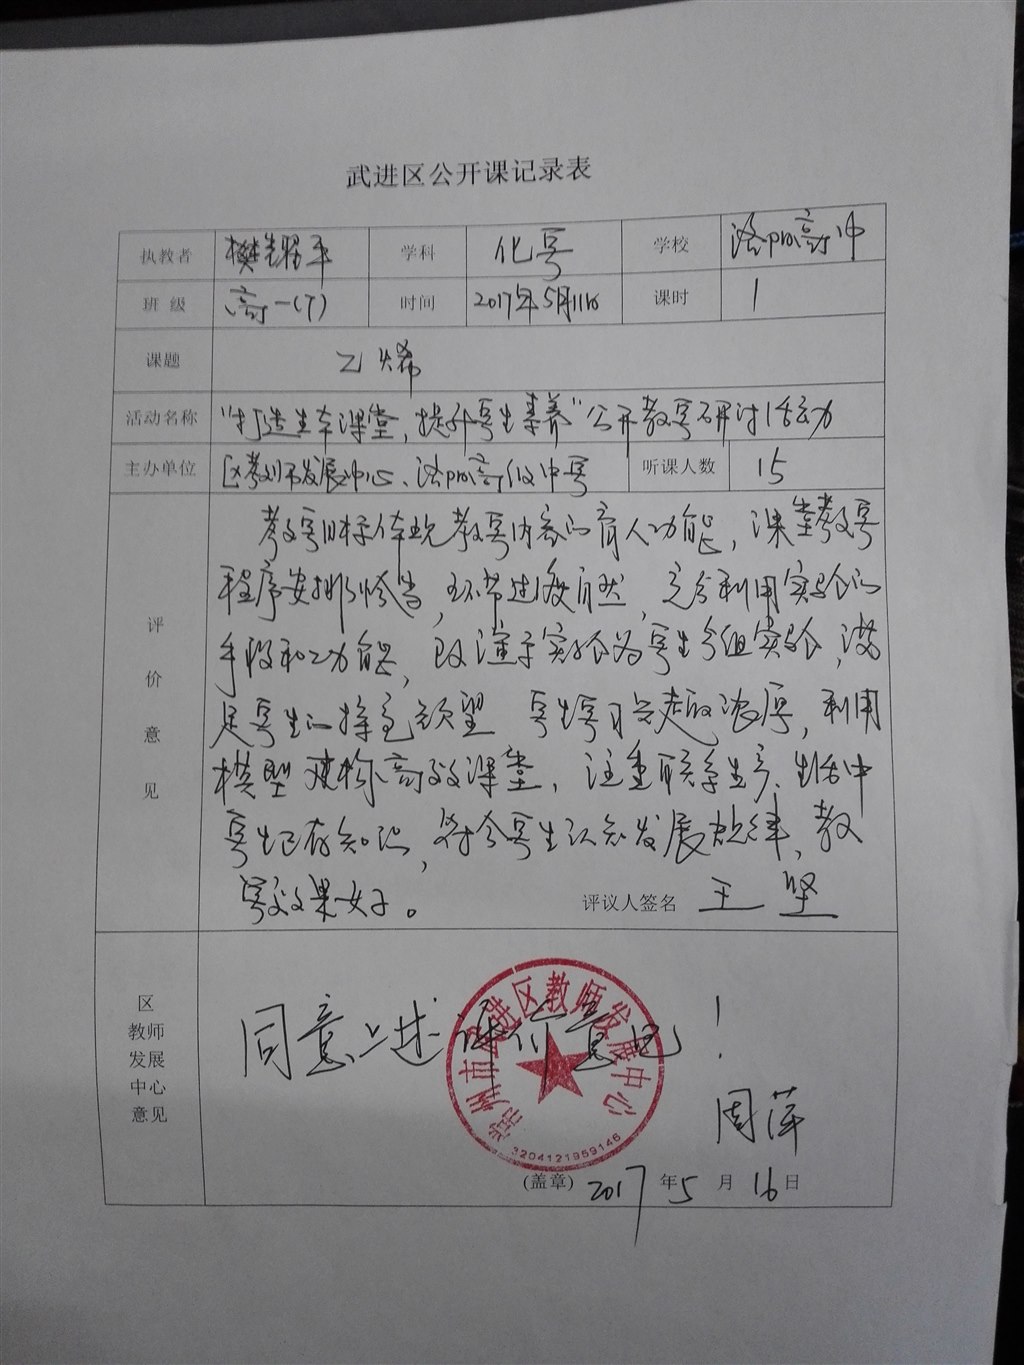 武进区公开课记录表
执教者 樊耀平 学科 化学 学校 洛阳高中
班级 高一(7) 时间 2017年5月11日 课时 1
课题 乙烯
活动名称 "打造生本课堂，提升学生素养"公开教学研讨活动
主办单位 区教师发展中心、洛阳高级中学 听课人数 15
评价意见
教学目标体现教学内容的育人功能，课堂教学
程序安排恰当，环节过渡自然，充分利用实验的
手段和功能，改演示实验为学生分组实验，满
足学生的探究欲望 学生学习兴趣浓厚，利用
模型建构高效课堂，注重联系生产、生活中
学生已有知识，符合学生认知发展规律，教
学效果好。
评议人签名 王坚
区教师发展中心意见
同意上述评价意见！
常州市武进区教师发展中心
3204121959146
周萍
(盖章) 2017年5月16日